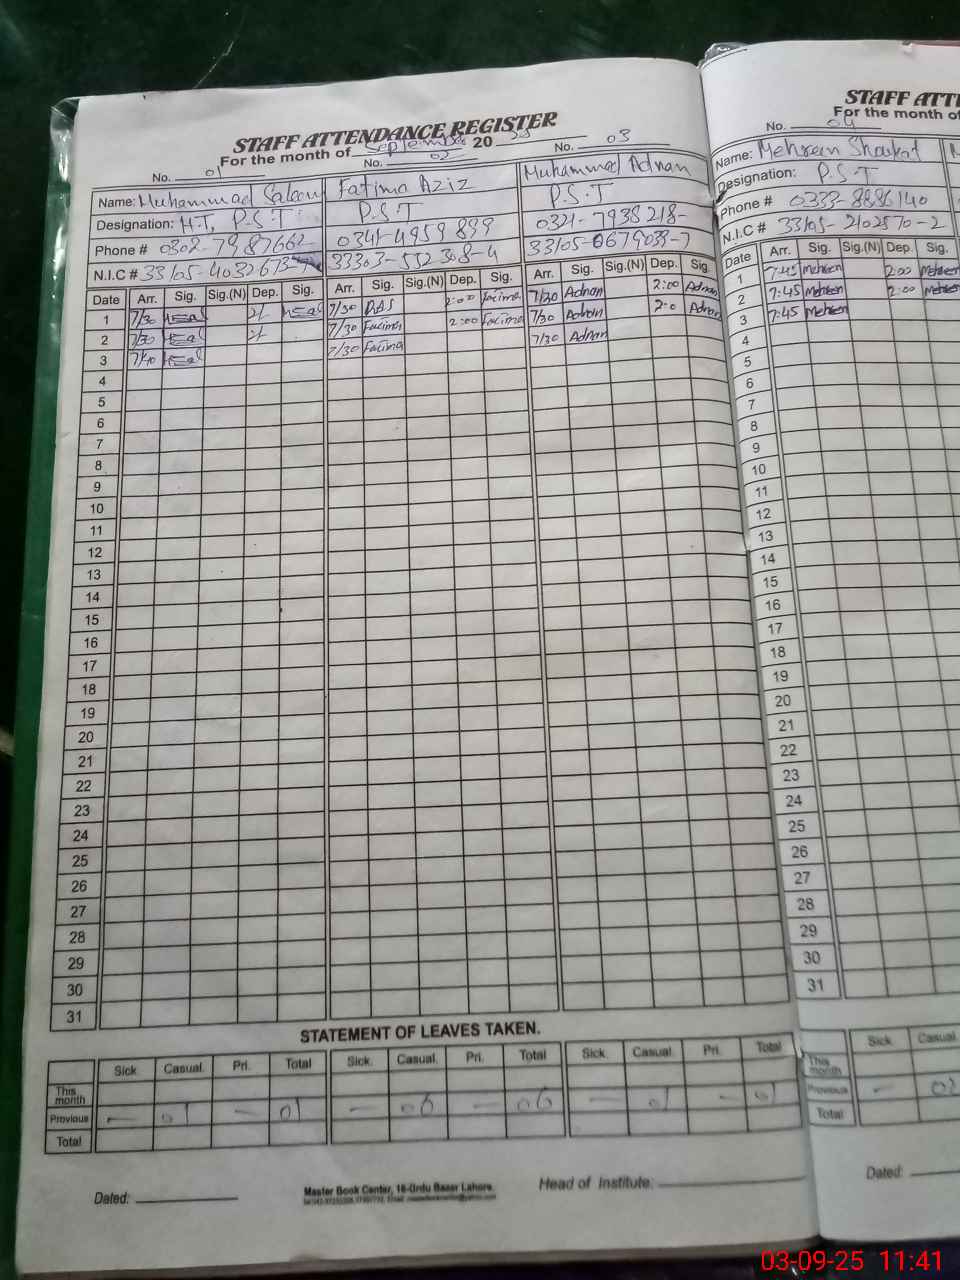 STAFF ATTENDANCE REGISTER
For the month of September 20 25
No. 01 No. 02 No. 03
Name: Muhammad Saleem Fatima Aziz Muhammad Adnan
Designation: H.T, P.S.T P.S.T P.S.T
Phone # 0308-7987662 0341-4959899 0321-7938218-
N.I.C # 33105-4032673- 33303-552308-4 33105-0679033-7
Date Arr. Sig. Sig.(N) Dep. Sig. Arr. Sig. Sig.(N) Dep. Sig. Arr. Sig. Sig.(N) Dep. Sig.
1 7/30 7/30 2:00 Fatima 7/30 Adnan 2:00 Adnan
2 7/30 7/30 Fatima 2:00 Fatima 7/30 Adnan 2:0 Adnan
3 7/40 7/30 Fatima 7/30 Adnan
4
5
6
7
8
9
10
11
12
13
14
15
16
17
18
19
20
21
22
23
24
25
26
27
28
29
30
31
STATEMENT OF LEAVES TAKEN.
Sick. Casual. Pri. Total Sick. Casual. Pri. Total Sick. Casual. Pri. Total
This month
Previous - 01 - 01 - 06 - 06 - 01 - 01
Total
Dated:
Master Book Center, 16-Urdu Bazar Lahore.
Head of Institute:
STAFF ATT
For the month of
No. 04
Name: Mehreen Shaukat
Designation: P.S.T
Phone # 0333-8886140
N.I.C # 33105-2102570-2
Date Arr. Sig. Sig.(N) Dep. Sig.
1 7:45 Mehreen 2:00 Mehreen
2 7:45 Mehreen 2:00 Mehreen
3 7:45 Mehreen
4
5
6
7
8
9
10
11
12
13
14
15
16
17
18
19
20
21
22
23
24
25
26
27
28
29
30
31
Sick. Casual.
This month
Previous - 02
Total
Dated:
03-09-25 11:41